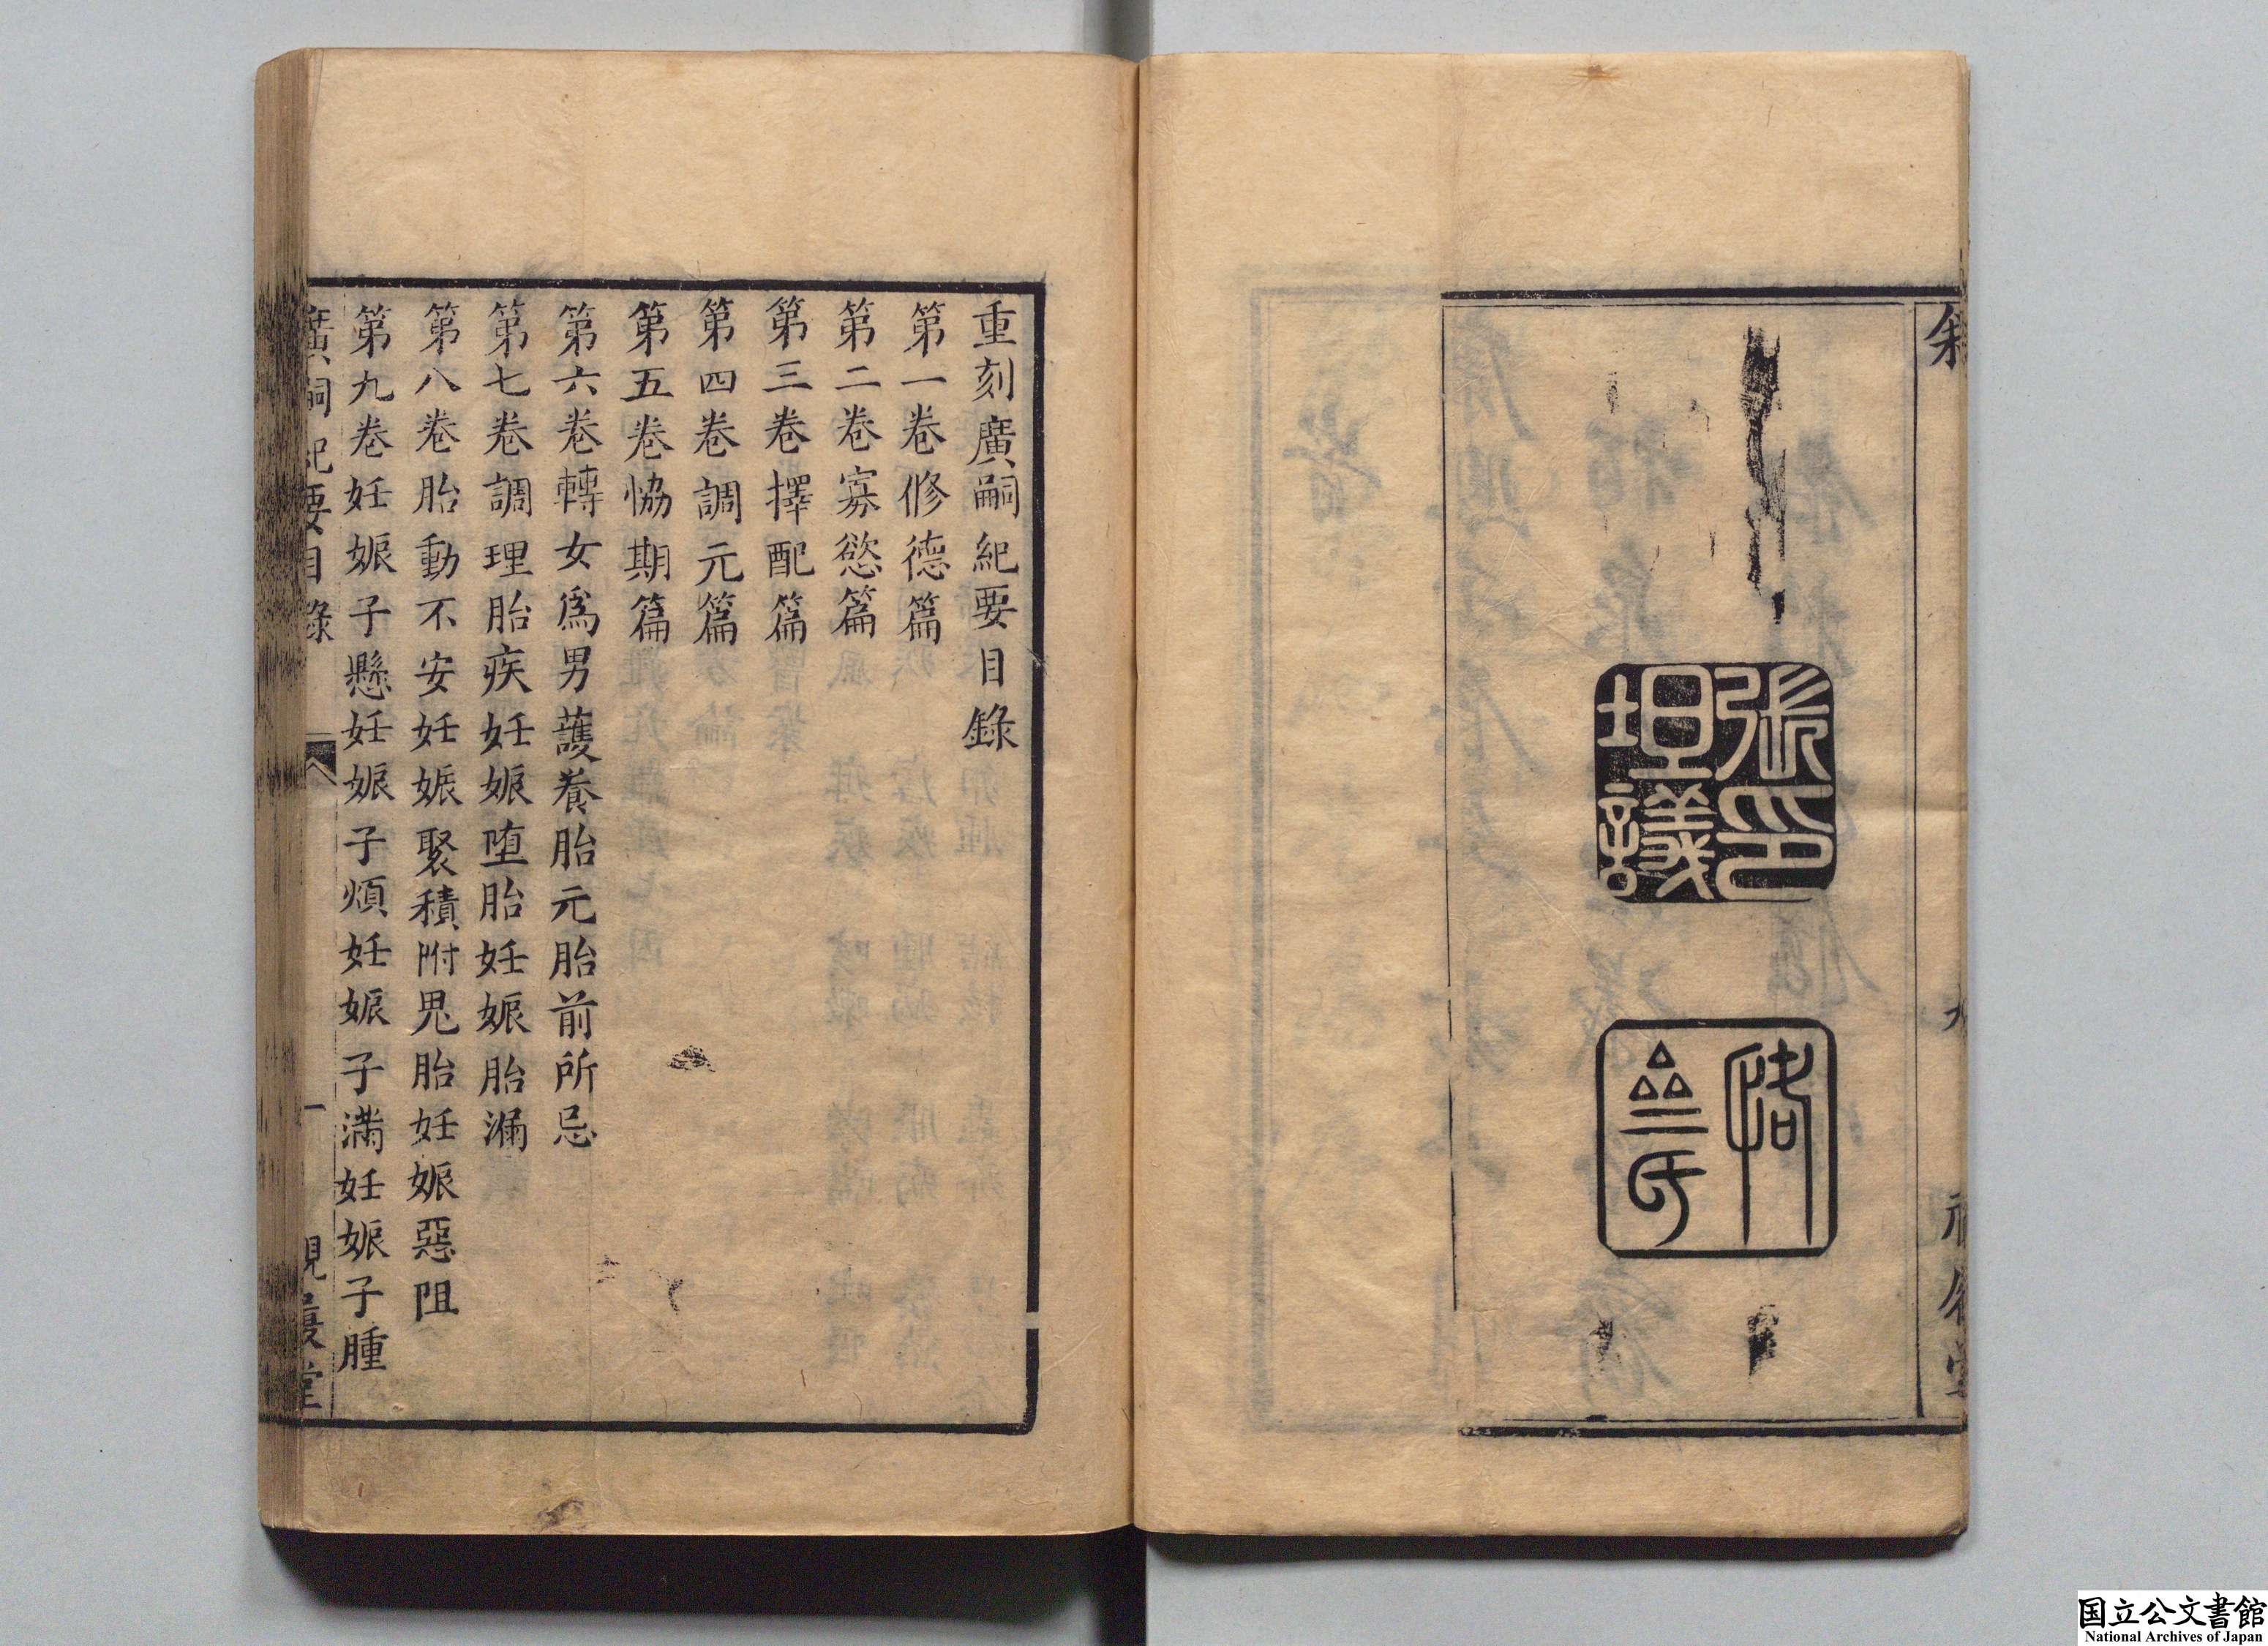 叙
張印
坦議
重刻廣嗣紀要目錄
第一卷修德篇
第二卷寡慾篇
第三卷擇配篇
第四卷調元篇
第五卷協期篇
第六卷轉女爲男護養胎元胎前所忌
第七卷調理胎疾妊娠堕胎妊娠胎漏
第八卷胎動不安妊娠聚積附鬼胎妊娠惡阻
第九卷妊娠子懸妊娠子煩妊娠子滿妊娠子腫
廣嗣紀要目錄
一
国立公文書館
National Archives of Japan